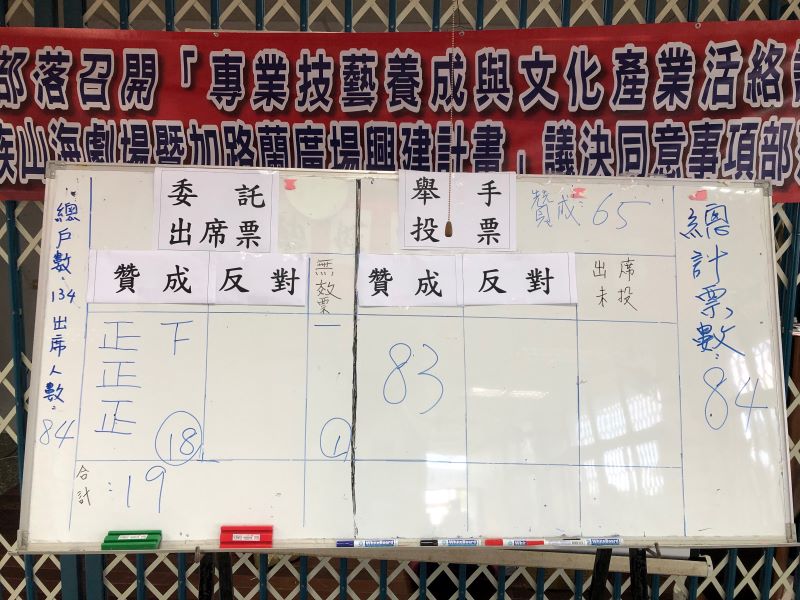 部落召開「專業技藝養成與文化產業活絡
族山海劇場暨加路蘭廣場興建計畫」議決同意事項部
總戶數:134 出席人數:84
委託
出席票
舉手
投票
贊成:65
總計票數:84
贊成
反對
無效票
贊成
反對
出席
未投
正下
正
正
18
一
1
83
合計:19
WhiteBoard
WhiteBoard
WhiteBoard